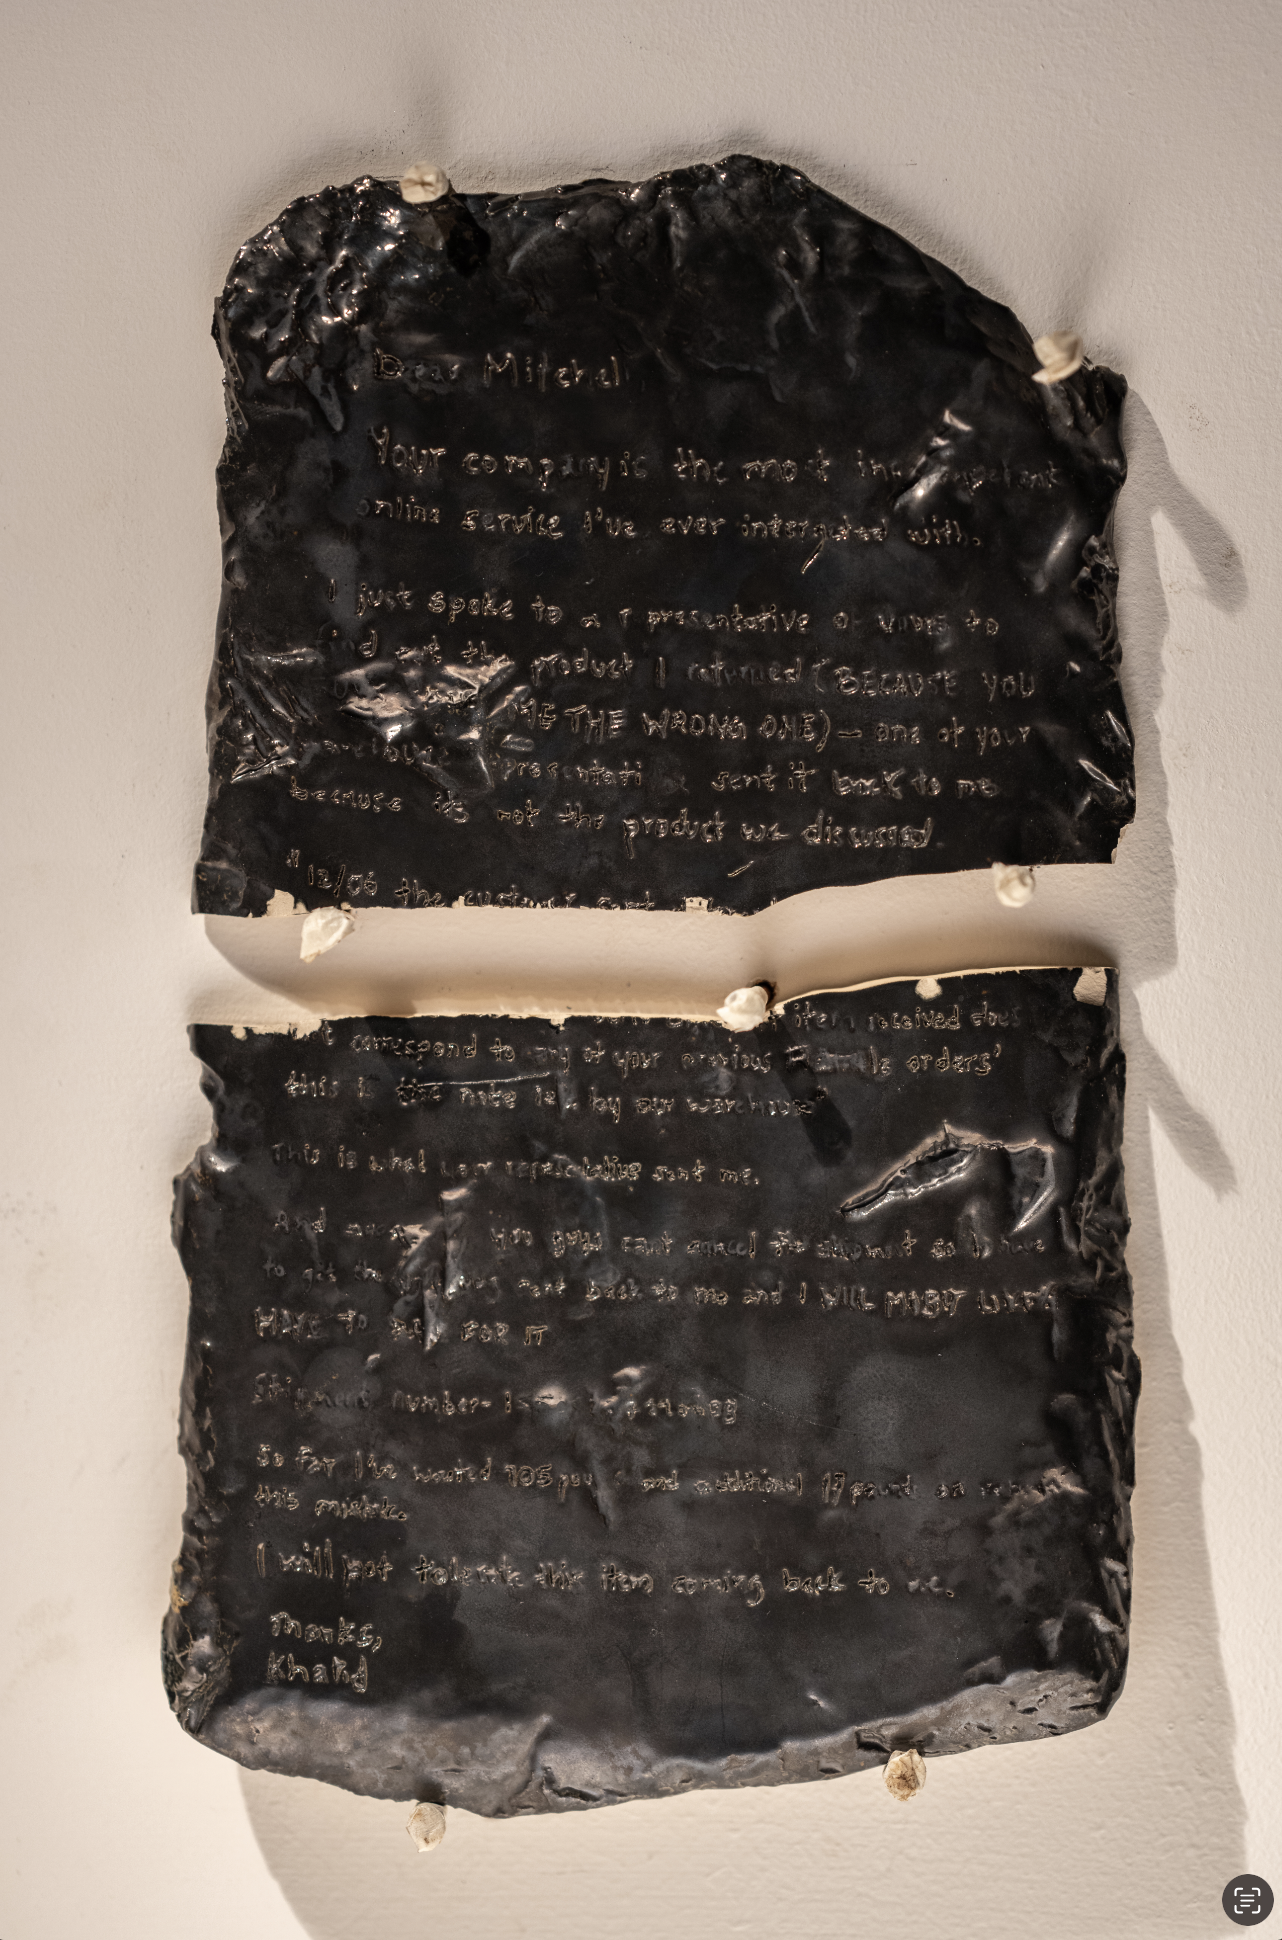 Dear Mitchel,
Your company is the most incompetent
online service I've ever intergcted with.
I just spoke to a r presentative of yours to
find out the product I returned (BECAUSE YOU
ME THE WRONG ONE) - one of your
sent it back to me
because its not the product we discussed.
"12/06 the customer sent
item received does
correspond to any of your previous orders'
this is the note by our warehouse"
This is what your representative sent me.
And you guys cant cancel the shipment so
to get the sent back to me and I WILL MOST LIKELY
HAVE TO FOR IT
Shipping number-
So far I've wasted 105 and additional 17 pounds on
this mistake.
I will not tolerate this item coming back to me.
Thanks,
Khalid